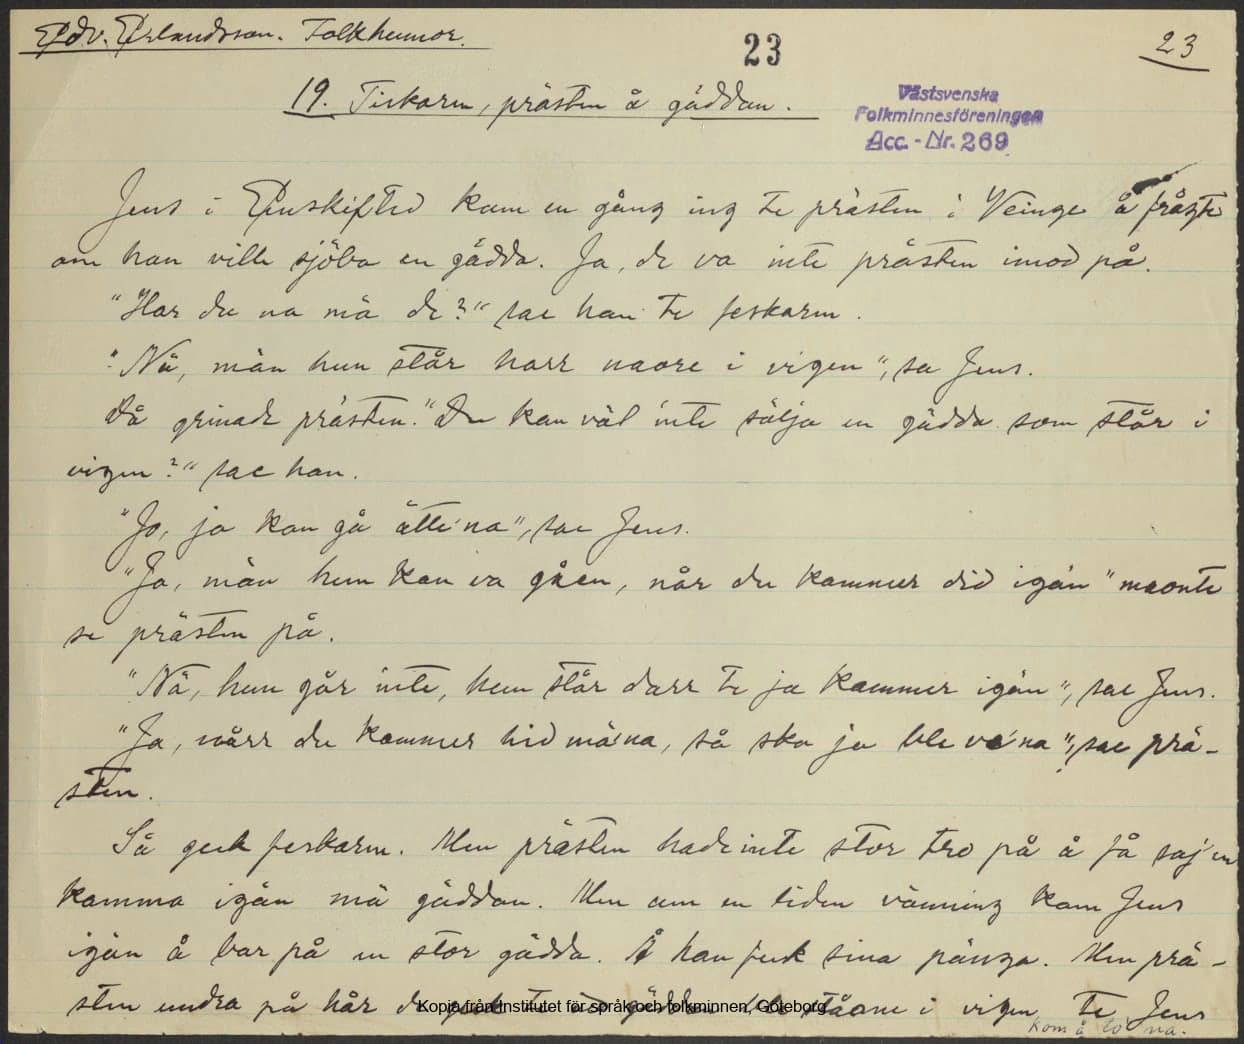 Edv. Erlandsson. Folkhumor.
23
23
19. Fiskarn, prästen å gäddan.
Västsvenska
Folkminnesföreningen
Acc. - Nr. 269
Jens i Enskifted kom en gång ing te prästen i Veinge å frågte
om han ville sjöba en gädda. Ja, de va inte prästen imod på.
"Har du na mä de?" sae han te feskarn.
"Nä, män hun står harr naore i vigen", sa Jens.
Då grinade prästen. "Du kan väl inte sälja en gädda som står i
vigen?" sae han.
"Jo, ja kan gå ätte'na", sae Jens.
"Ja, män hun kan va gåen, når du kommer did igän" maonte
se prästen på.
"Nä, hun går inte, hun står darr te ja kommer igän", sae Jens.
"Ja, nårr du kommer hid mä'na, så ska ja ble ve'na", sae prä-
sten.
Så geck feskarn. Men prästen hade inte stor tro på å få saj'en
komma igän mä gäddan. Men om en liden vänning kom Jens
igän å bar på en stor gädda. Å han feck sina pänga. Men prä-
sten undra på hår de gädd ståone i vigen te Jens
kom å to na.
Kopia från Institutet för språk och folkminnen, Göteborg